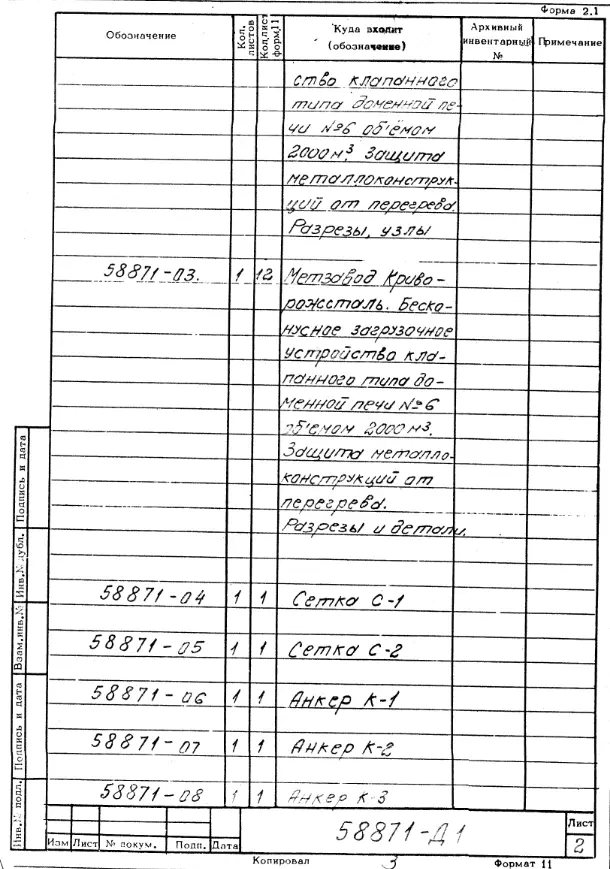 Форма 2.1
Обозначение
Кол. листов
Кол.лист форм.11
Куда входит
(обозначение)
Архивный
инвентарный
№
Примечание
ство клапанного
типа доменной пе-
чи №6 объёмом
2000м³. Защита
металлоконструк-
ций от перегрева.
Разрезы, узлы
58871-03. 1 12 Метзавод Криво-
рожсталь. Беско-
нусное загрузочное
устройство кла-
панного типа до-
менной печи №6
объемом 2000м³.
Защита металло-
конструкций от
перегрева.
Разрезы и детали.
58871-04 1 1 Сетка С-1
58871-05 1 1 Сетка С-2
58871-06 1 1 Анкер К-1
58871-07 1 1 Анкер К-2
58871-08 1 1 Анкер К-3
Подпись и дата
Инв.№ дубл.
Взам.инв.№
Подпись и дата
Инв.№ подл.
Изм Лист № докум. Подп. Дата
58871-Д1
Лист
2
Копировал
3
Формат 11